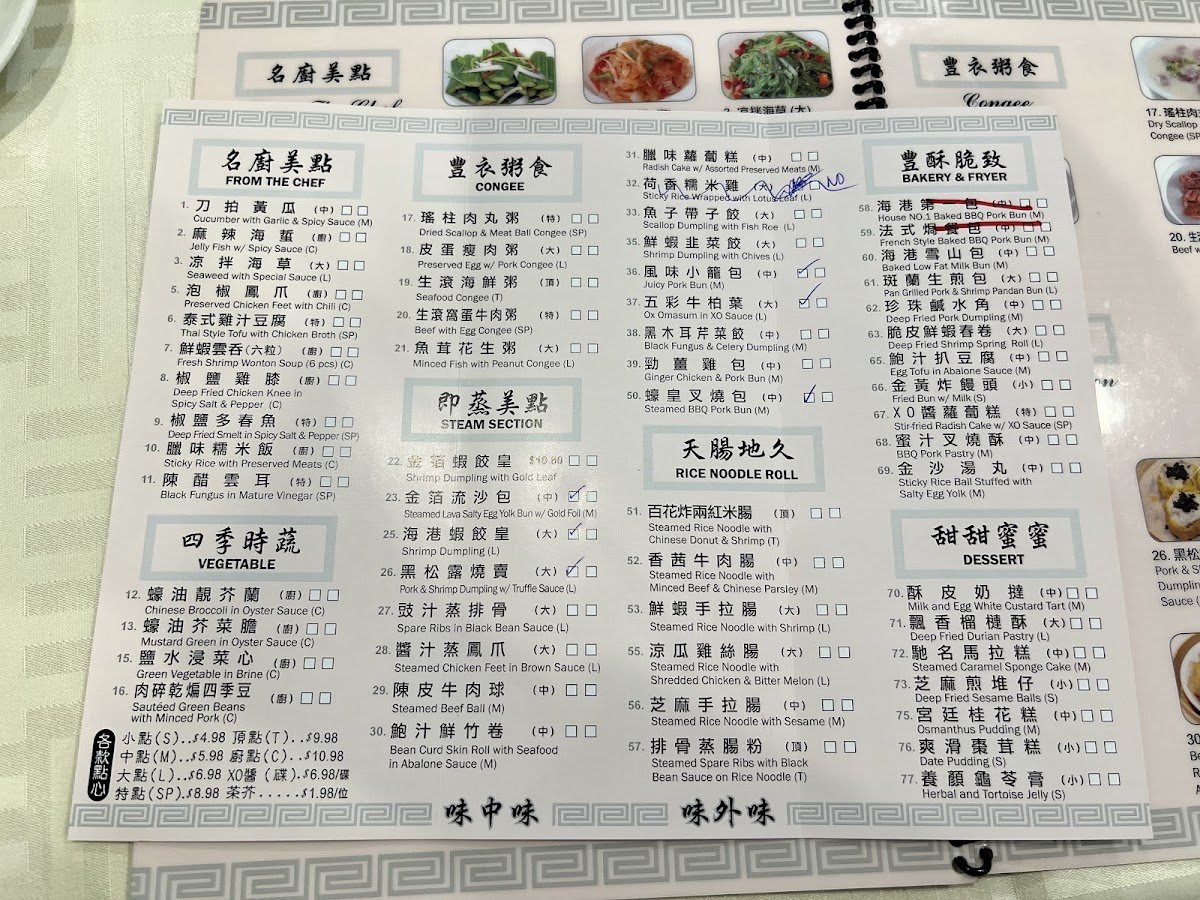 名廚美點
豐衣粥食
Congee
3. 凉拌海草(大)
17. 瑤柱肉
Dry Scallop
Congee (SP
20. 生
Beef w
26. 黑松
Pork & S
Dumplin
Sauce (
30
名廚美點
FROM THE CHEF
1. 刀拍黃瓜 (中)
Cucumber with Garlic & Spicy Sauce (M)
2. 麻辣海蜇 (廚)
Jelly Fish w/ Spicy Sauce (C)
3. 凉拌海草 (大)
Seaweed with Special Sauce (L)
5. 泡椒鳳爪 (廚)
Preserved Chicken Feet with Chili (C)
6. 泰式雞汁豆腐 (特)
Thai Style Tofu with Chicken Broth (SP)
7. 鮮蝦雲吞(六粒) (廚)
Fresh Shrimp Wonton Soup (6 pcs) (C)
8. 椒鹽雞膝 (廚)
Deep Fried Chicken Knee in
Spicy Salt & Pepper (C)
9. 椒鹽多春魚 (特)
Deep Fried Smelt in Spicy Salt & Pepper (SP)
10. 臘味糯米飯 (廚)
Sticky Rice with Preserved Meats (C)
11. 陳醋雲耳 (特)
Black Fungus in Mature Vinegar (SP)
四季時蔬
VEGETABLE
12. 蠔油靚芥蘭 (廚)
Chinese Broccoli in Oyster Sauce (C)
13. 蠔油芥菜膽 (廚)
Mustard Green in Oyster Sauce (C)
15. 鹽水浸菜心 (廚)
Green Vegetable in Brine (C)
16. 肉碎乾煸四季豆 (廚)
Sautéed Green Beans
with Minced Pork (C)
各款點心
小點(S)..$4.98 頂點(T)..$9.98
中點(M)..$5.98 廚點(C)..$10.98
大點(L)..$6.98 XO醬(碟).$6.98/碟
特點(SP).$8.98 茶芥.....$1.98/位
豐衣粥食
CONGEE
17. 瑤柱肉丸粥 (特)
Dried Scallop & Meat Ball Congee (SP)
18. 皮蛋瘦肉粥 (大)
Preserved Egg w/ Pork Congee (L)
19. 生滾海鮮粥 (頂)
Seafood Congee (T)
20. 生滾窩蛋牛肉粥 (特)
Beef with Egg Congee (SP)
21. 魚茸花生粥 (大)
Minced Fish with Peanut Congee (L)
即蒸美點
STEAM SECTION
22. 金箔蝦餃皇 $10.80
Shrimp Dumpling with Gold Leaf
23. 金箔流沙包 (中)
Steamed Lava Salty Egg Yolk Bun w/ Gold Foil (M)
25. 海港蝦餃皇 (大)
Shrimp Dumpling (L)
26. 黑松露燒賣 (大)
Pork & Shrimp Dumpling w/ Truffle Sauce (L)
27. 豉汁蒸排骨 (大)
Spare Ribs in Black Bean Sauce (L)
28. 醬汁蒸鳳爪 (大)
Steamed Chicken Feet in Brown Sauce (L)
29. 陳皮牛肉球 (中)
Steamed Beef Ball (M)
30. 鮑汁鮮竹卷 (中)
Bean Curd Skin Roll with Seafood
in Abalone Sauce (M)
31. 臘味蘿蔔糕 (中)
Radish Cake w/ Assorted Preserved Meats (M)
32. 荷香糯米雞 (大) NO
Sticky Rice Wrapped with Lotus Leaf (L)
33. 魚子帶子餃 (大)
Scallop Dumpling with Fish Roe (L)
35. 鮮蝦韭菜餃 (大)
Shrimp Dumpling with Chives (L)
36. 風味小籠包 (中)
Juicy Pork Bun (M)
37. 五彩牛柏葉 (大)
Ox Omasum in XO Sauce (L)
38. 黑木耳芹菜餃 (中)
Black Fungus & Celery Dumpling (M)
39. 勁薑雞包 (中)
Ginger Chicken & Pork Bun (M)
50. 蠔皇叉燒包 (中)
Steamed BBQ Pork Bun (M)
天腸地久
RICE NOODLE ROLL
51. 百花炸兩紅米腸 (頂)
Steamed Rice Noodle with
Chinese Donut & Shrimp (T)
52. 香茜牛肉腸 (中)
Steamed Rice Noodle with
Minced Beef & Chinese Parsley (M)
53. 鮮蝦手拉腸 (大)
Steamed Rice Noodle with Shrimp (L)
55. 涼瓜雞絲腸 (大)
Steamed Rice Noodle with
Shredded Chicken & Bitter Melon (L)
56. 芝麻手拉腸 (中)
Steamed Rice Noodle with Sesame (M)
57. 排骨蒸腸粉 (頂)
Steamed Spare Ribs with Black
Bean Sauce on Rice Noodle (T)
豐酥脆致
BAKERY & FRYER
58. 海港第一包 (中)
House NO.1 Baked BBQ Pork Bun (M)
59. 法式焗餐包 (中)
French Style Baked BBQ Pork Bun (M)
60. 海港雪山包 (中)
Baked Low Fat Milk Bun (M)
61. 斑蘭生煎包 (大)
Pan Grilled Pork & Shrimp Pandan Bun (L)
62. 珍珠鹹水角 (中)
Deep Fried Pork Dumpling (M)
63. 脆皮鮮蝦春卷 (大)
Deep Fried Shrimp Spring Roll (L)
65. 鮑汁扒豆腐 (中)
Egg Tofu in Abalone Sauce (M)
66. 金黃炸饅頭 (小)
Fried Bun w/ Milk (S)
67. XO醬蘿蔔糕 (特)
Stir-fried Radish Cake w/ XO Sauce (SP)
68. 蜜汁叉燒酥 (中)
BBQ Pork Pastry (M)
69. 金沙湯丸 (中)
Sticky Rice Ball Stuffed with
Salty Egg Yolk (M)
甜甜蜜蜜
DESSERT
70. 酥皮奶撻 (中)
Milk and Egg White Custard Tart (M)
71. 飄香榴槤酥 (大)
Deep Fried Durian Pastry (L)
72. 馳名馬拉糕 (中)
Steamed Caramel Sponge Cake (M)
73. 芝麻煎堆仔 (小)
Deep Fried Sesame Balls (S)
75. 宮廷桂花糕 (中)
Osmanthus Pudding (M)
76. 爽滑棗茸糕 (小)
Date Pudding (S)
77. 養顏龜苓膏 (小)
Herbal and Tortoise Jelly (S)
味中味
味外味